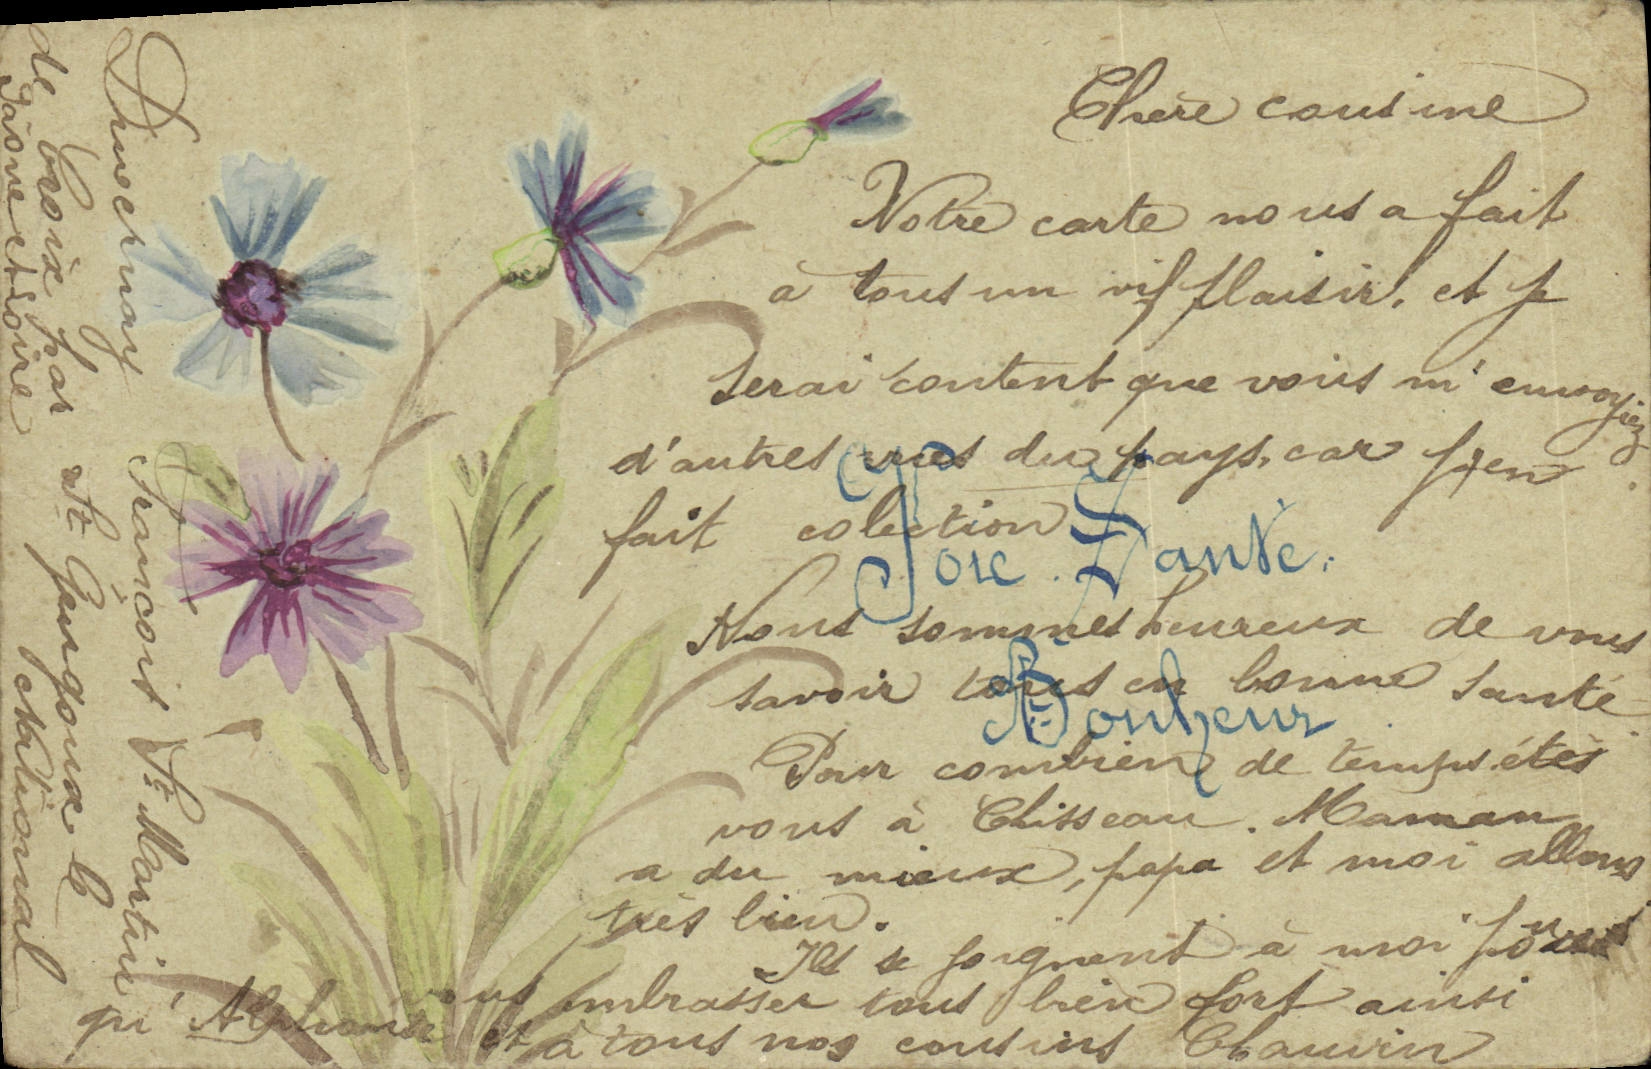 Chère cousine
Votre carte nous a fait
a tous un vif plaisir, et je
serai content que vous m'envoyiez
d'autres vues du pays, car j'en
fait colection
Joie. Santé.
Nous sommes heureux de vous
savoir tous en bonne santé
Bonheur
Pour combien de temps étes
vous à Chisseau. Maman
a du mieux, papa et moi allons
très bien.
Ils se joignent à moi pour
vous embrasser tous bien fort ainsi
qu'Alphonse et à tous nos cousins Chauvin
Francois St Martin
de croix par St Gengoux le national
Saone et Loire